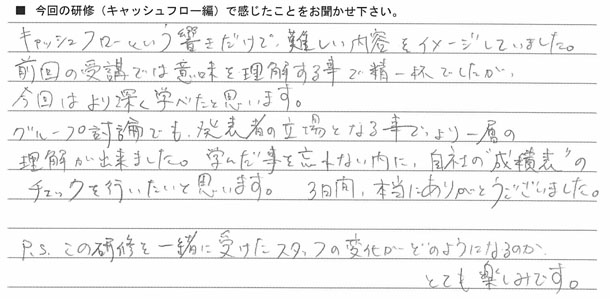 ■ 今回の研修（キャッシュフロー編）で感じたことをお聞かせ下さい。
キャッシュフローという響きだけで、難しい内容をイメージしていました。
前回の受講では意味を理解する事で精一杯でしたが、
今回はより深く学べたと思います。
グループ討論でも、発表者の立場となる事で、より一層の
理解が出来ました。学んだ事を忘れない内に、自社の"成績表"の
チェックを行いたいと思います。3日間、本当にありがとうございました。
P.S. この研修を一緒に受けたスタッフの変化がどのようになるのか、
とても楽しみです。